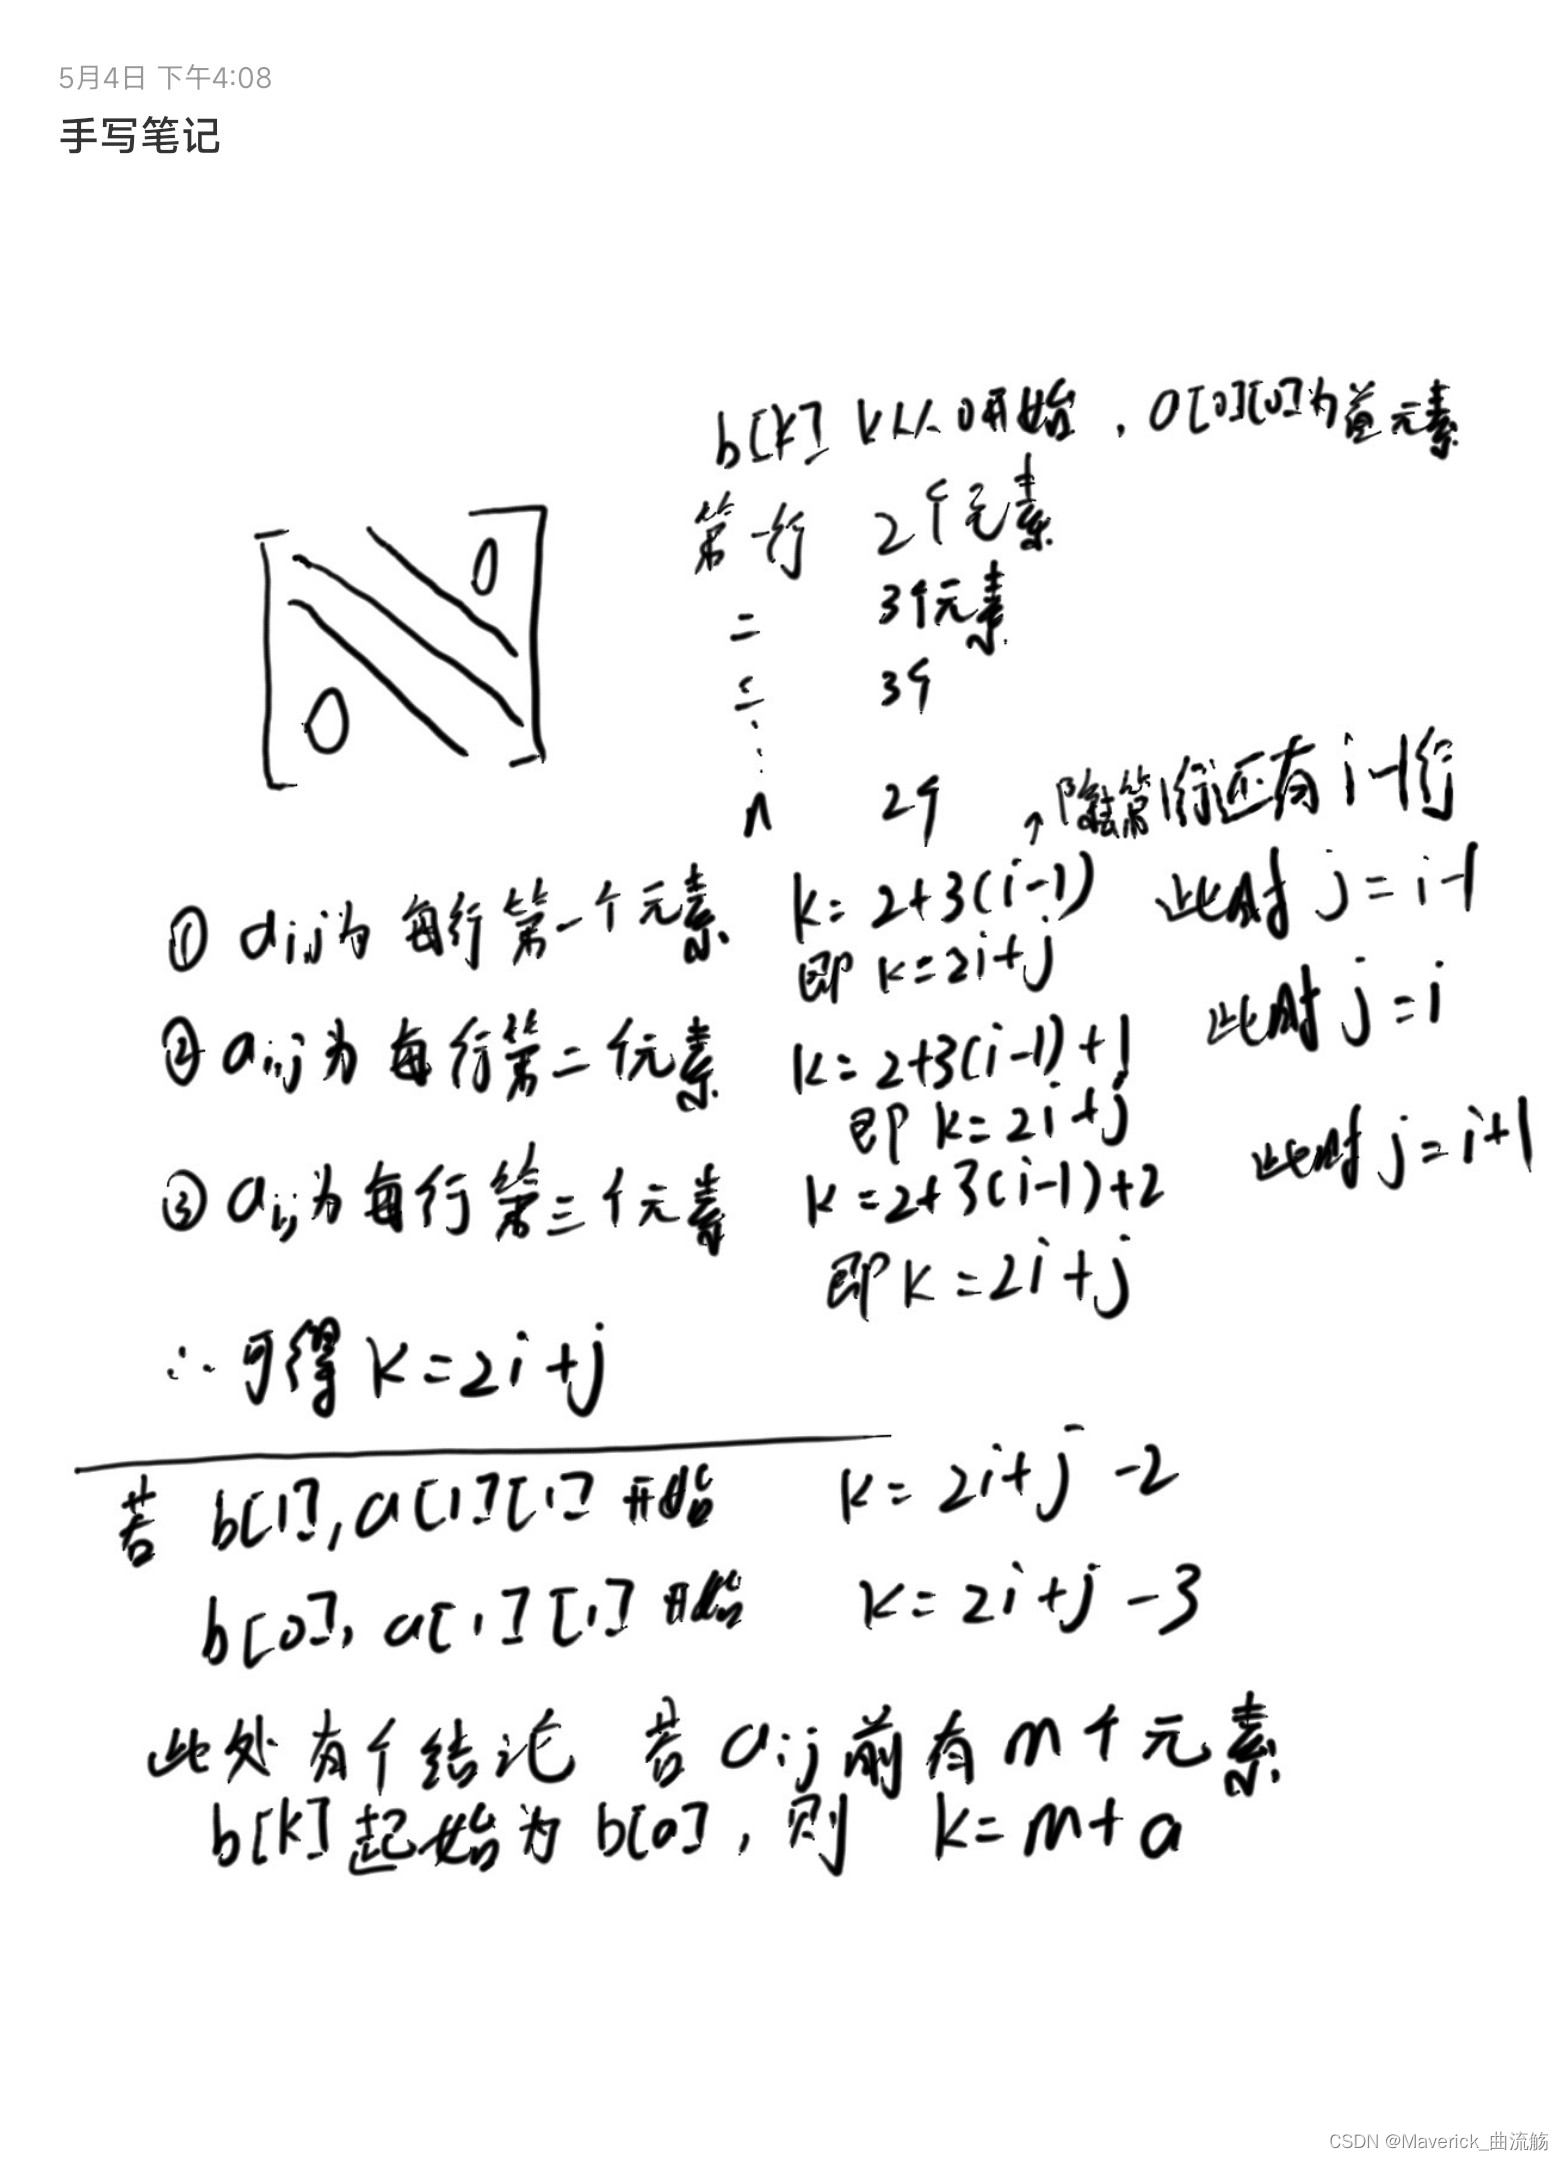 5月4日 下午4:08
手写笔记
b[k] k从0开始，a[0][0]为首元素
第一行 2个元素
二 3个元素
三 3个
⋮
n 2个
↗除去第1行还有i-1行
0
0
① ai,j为每行第一个元素 k=2+3(i-1) 此时 j=i-1
即 k=2i+j
② ai,j为每行第二个元素 k=2+3(i-1)+1 此时 j=i
即 k=2i+j
③ ai,j为每行第三个元素 k=2+3(i-1)+2 此时 j=i+1
即 k=2i+j
∴可得 k=2i+j
若 b[1],a[1][1]开始 k=2i+j-2
b[0],a[1][1]开始 k=2i+j-3
此处有个结论 若 aij前有m个元素
b[k]起始为b[a]，则 k=m+a
CSDN @Maverick_曲流觞